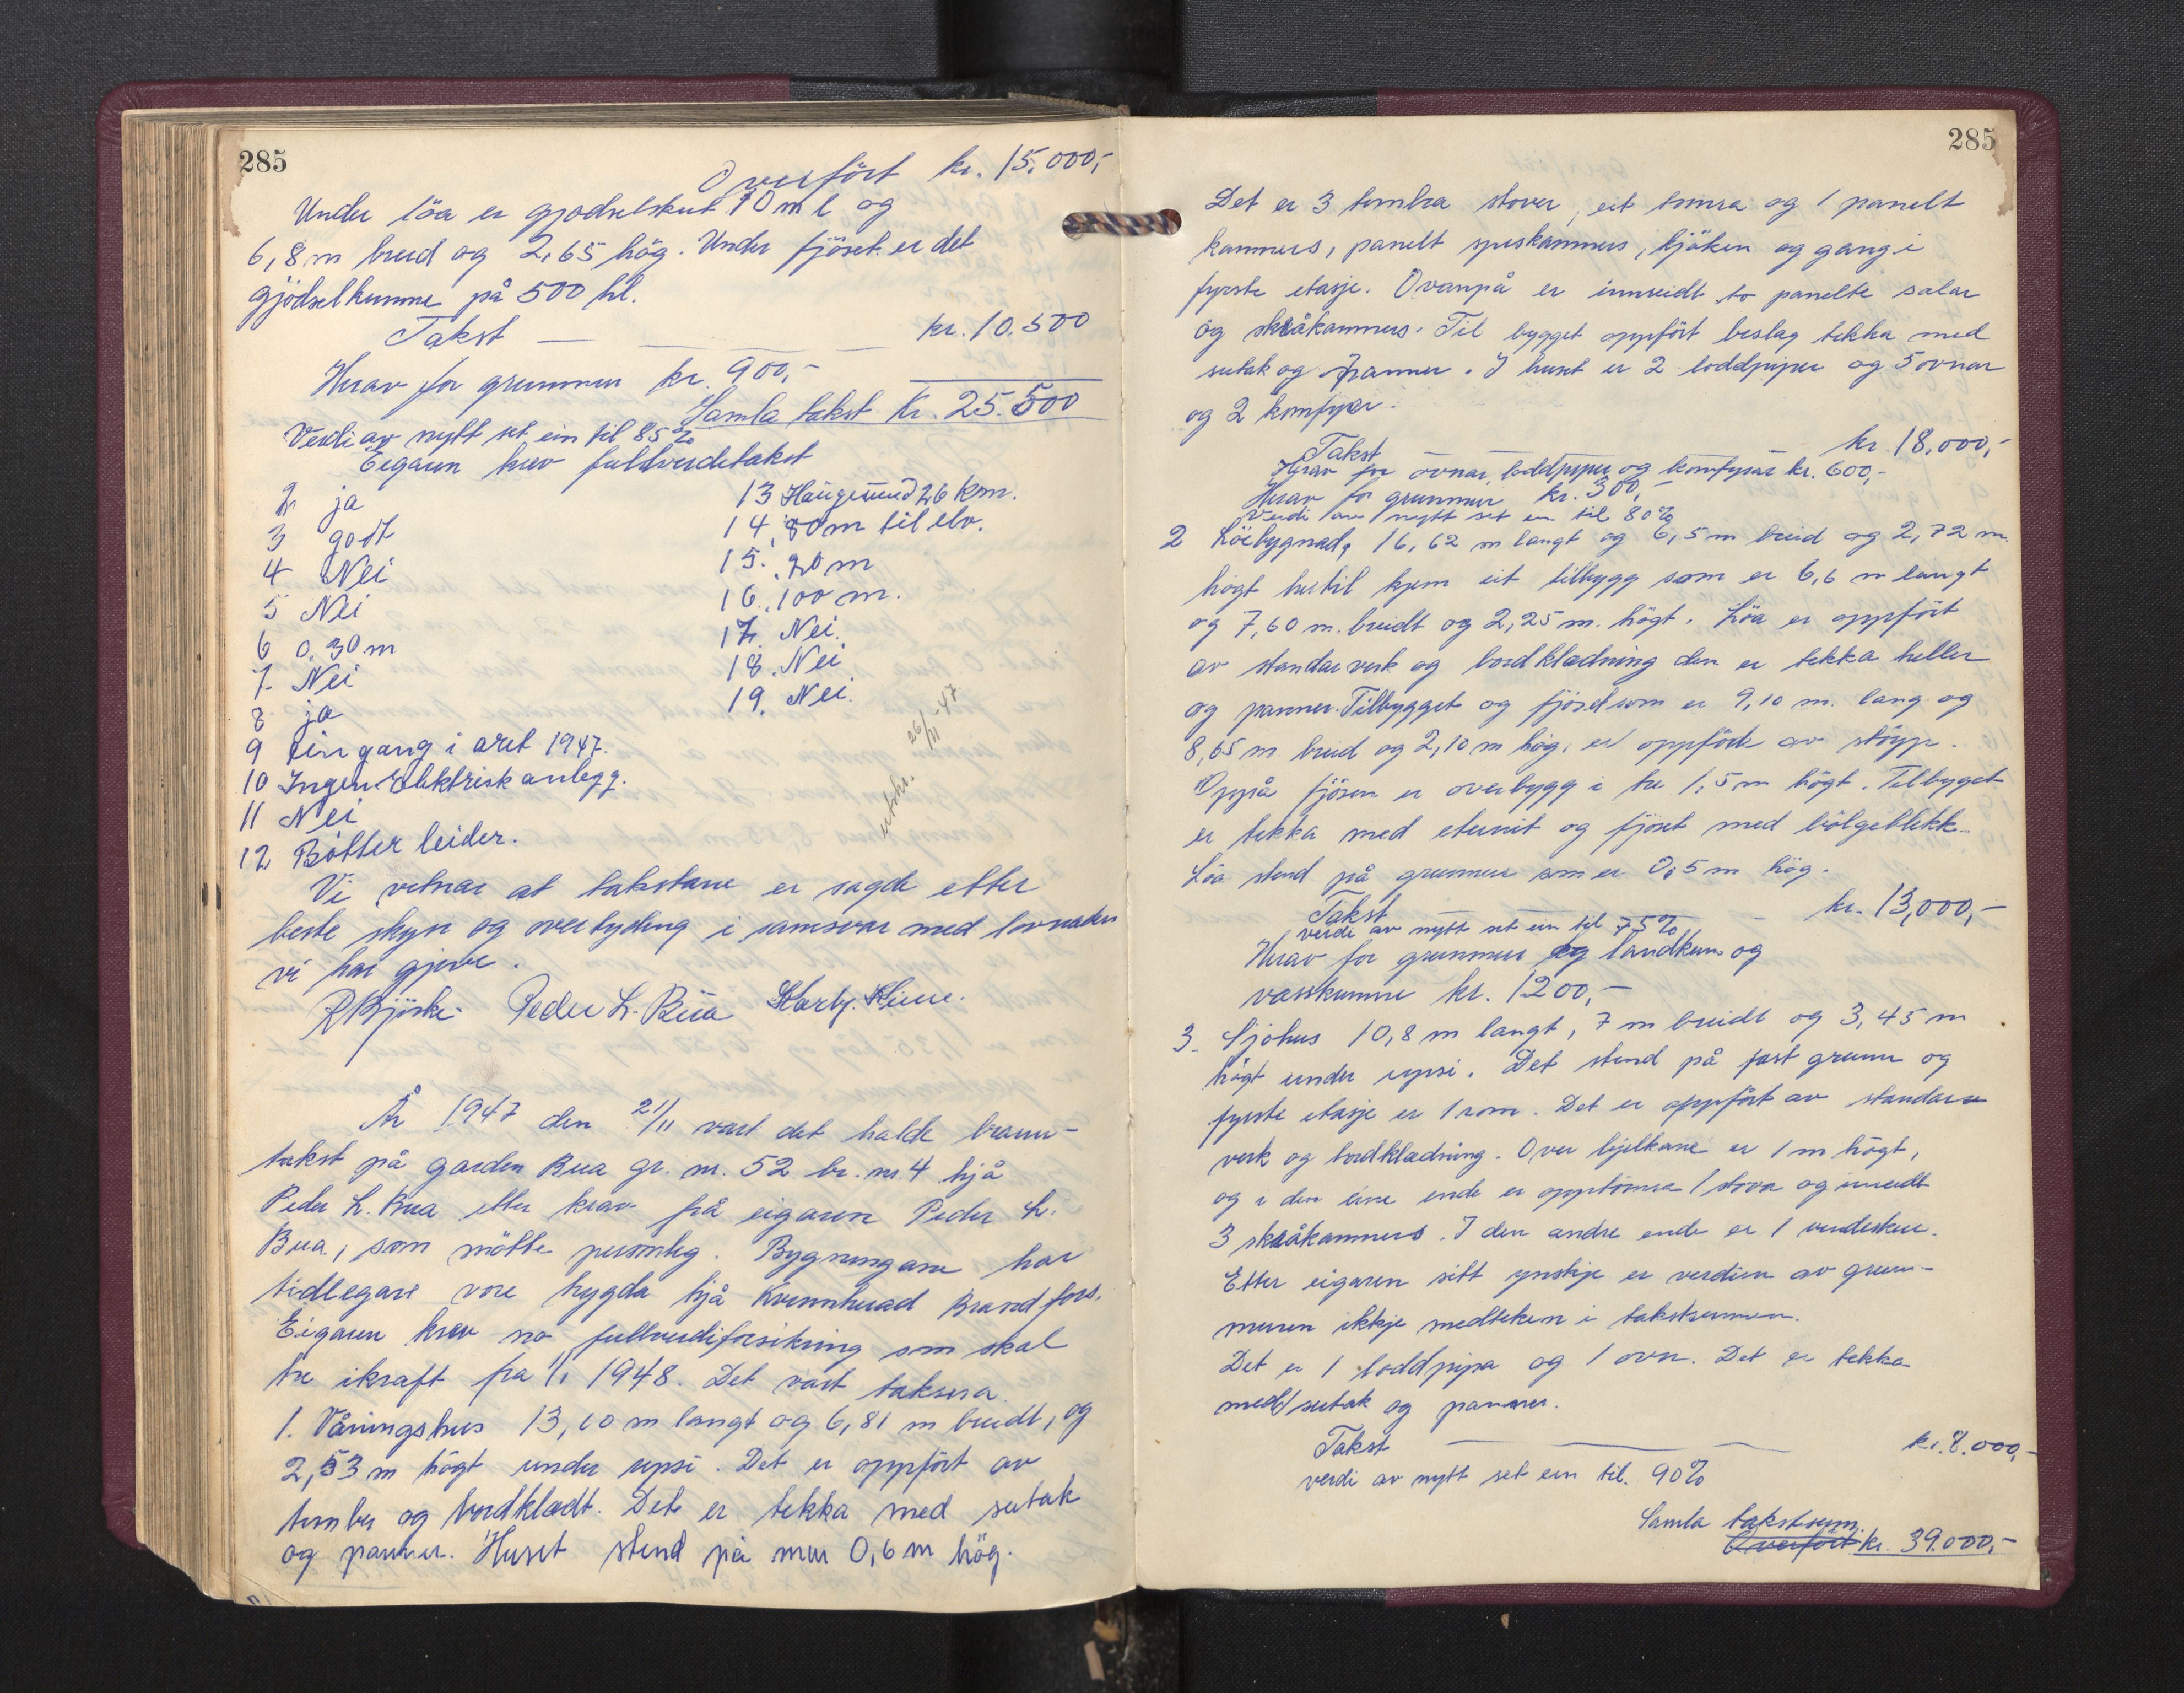 285
Overfört kr. 15.000,-
Under löa er gjodselskut 10 m l og
6,8 m breid og 2,65 hög. Under fjöset er det
gjödselkumme på 500 hl.
Takst — — — — kr. 10.500
Herav for grunnmur kr. 900,-
Samla takst Kr. 25.500
Verdi av nytt set ein til 85%
Eigaren krev fullverdetakst
2 ja
3 godt
4 Nei
5 Nei
6 0.30 m
7 Nei
8 ja
9 Ein gang i aret 1947.
10 Ingen Elektrisk anlegg.
11 Nei
12 Bötter leider.
13 Haugesund 26 km.
14. 80 m til elv.
15. 20 m
16. 100 m.
17. Nei.
18. Nei
19. Nei.
utskr. 26/11-47
Vi vitnar at takstane er sagde etter
beste skyn og overtyding i samsvar med lovnaden
vi har gjeve.
R Bjöske. Peder L. Bua
År 1947 den 21/11 vart det halde brann-
takst på garden Bua gr. nr. 52 br. nr. 4 hjå
Peder L. Bua etter krav frå eigaren Peder L.
Bua, som mötte personleg. Bygningane har
tidlegare vore trygda hjå Kvinnherad Brandfors.
Eigaren krev no fullverdiforsikring som skal
tre ikraft fra 1/1 1948. Det vart taksera
1. Våningshus 13,10 m langt og 6,81 m breidt, og
2,53 m högt under upsi. Det er oppfört av
tember og bordklædt. Det er tekka med sutak
og panner. Huset stend på mur 0,6 m hög.
285
Det er 3 tembra stover, eit tmra og 1 panelt
kammers, panelt speskammers, kjöken og gang i
fyrste etasje. Ovanpå er innreidt to panelte salar
og skråkammers. Til bygget oppfört beslag tekka med
sutak og panner. I huset er 2 loddpiper og 5 ovnar
og 2 komfyrer.
Takst — — — kr. 18,000,-
Herav for ovnar, loddpiper og komfyrar kr. 600,-
Herav for grunnmur kr. 300,-
Verdi av nytt set ein til 80%
2 Löebygnad, 16,62 m langt og 6,5 m breid og 2,72 m.
högt hertil kjem eit tilbygg som er 6,6 m langt
og 7,60 m. breidt og 2,25 m. högt. Löa er oppfört
av standarverk og bordklædning den er tekka heller
og panner. Tilbygget og fjöset som er 9,10 m. lang og
8,65 m breid og 2,10 m hög, er oppförde av stöyp.
Oppå fjösen er overbygg i tre 1,5 m högt. Tilbyget
er tekka med eternit og fjöset med bölgeblekk.
Löa stend på grunnmur som er 0,5 m hög.
Takst — — — kr. 13,000,-
verdi av nytt set ein til 75%
Herav for grunnmur og landkum og
vasskumme kr. 1200,-
3. Sjöhus 10,8 m langt, 7 m breidt og 3,45 m
högt under upsi. Det stend på fast grunn og
fyrste etasje er 1 rom. Det er oppfört av standar
verk og bordklædning. Over bjelkane er 1 m högt,
og i den eine ende er opptömra 1 stova og inreidt
3 skråkammers. I den andre ende er 1 vedeskur.
Etter eigaren sitt ynskje er verdien av grun-
muren ikkje medteken i takstsummen.
Det er 1 loddpipa og 1 ovn. Det er tekka
med sutak og panner.
Takst — — — kr. 8.000,-
verdi av nytt set ein til. 90%
Samla takstsum
Overfört kr. 39.000,-